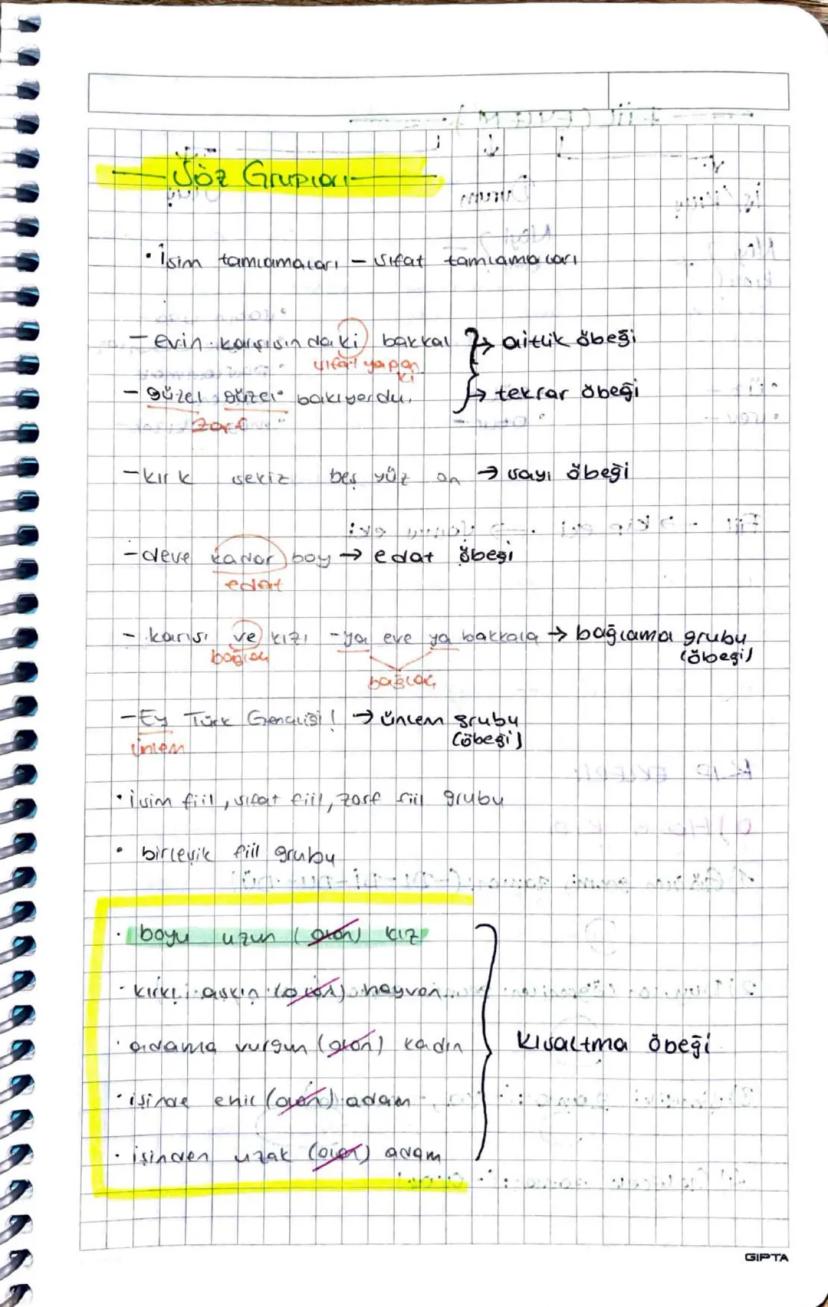 Söz Grupları
• İsim tamlamaları - sıfat tamlamaları
- evin karşısındaki bakkal → aitlik öbeği
sıfat yapan
ki
- güzel güzel bakıyordu. → tekrar öbeği
zarf
- kırk sekiz beş yüz on → sayı öbeği
- deve kadar boy → edat öbeği
edat
- karısı ve kızı - ya eve ya bakkala → bağlama grubu
(öbeği)
bağlaç
bağlaç
- Ey Türk Gençliği! → ünlem grubu
(öbeği)
ünlem
• isim fiil, sıfat fiil, zarf fiil grubu
• birleşik fiil grubu
• boyu uzun (olan) kız
• kırkı aşkın (olan) hayvan
• adama vurgun (olan) kadın
Kısaltma öbeği
• işinde ehil (olan) adam
• işinden uzak (olan) adam
GIPTA